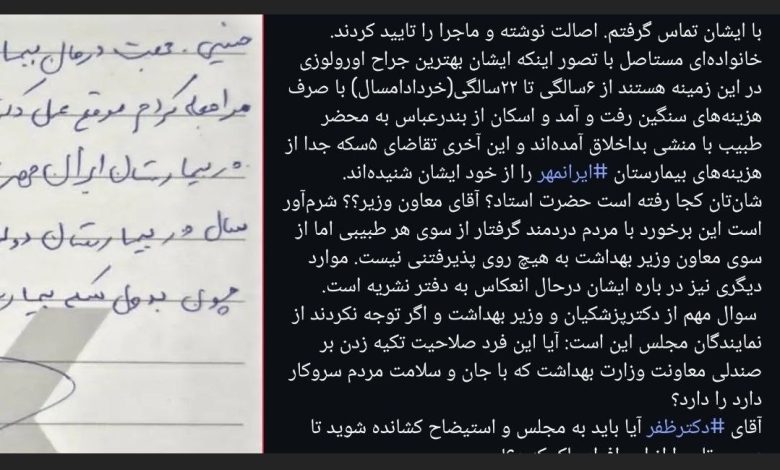 با ایشان تماس گرفتم. اصالت نوشته و ماجرا را تایید کردند.
خانواده‌ای مستاصل با تصور اینکه ایشان بهترین جراح اورولوژی
در این زمینه هستند از ۶سالگی تا ۲۲سالگی(خردادامسال) با صرف
هزینه‌های سنگین رفت و آمد و اسکان از بندرعباس به محضر
طبیب با منشی بداخلاق آمده‌اند و این آخری تقاضای ۵سکه جدا از
هزینه‌های بیمارستان #ایرانمهر را از خود ایشان شنیده‌اند.
شان‌تان کجا رفته است حضرت استاد؟ آقای معاون وزیر؟؟ شرم‌آور
است این برخورد با مردم دردمند گرفتار از سوی هر طبیبی اما از
سوی معاون وزیر بهداشت به هیچ روی پذیرفتنی نیست. موارد
دیگری نیز در باره ایشان درحال انعکاس به دفتر نشریه است.
سوال مهم از دکترپزشکیان و وزیر بهداشت و اگر توجه نکردند از
نمایندگان مجلس این است: آیا این فرد صلاحیت تکیه زدن بر
صندلی معاونت وزارت بهداشت که با جان و سلامت مردم سروکار
دارد را دارد؟
آقای #دکترظفر آیا باید به مجلس و استیضاح کشانده شوید تا
جهت درمان
مراجعه کردم موقع عمل
در بیمارستان ایران مهر
سال در بیمارستان
پول سکه